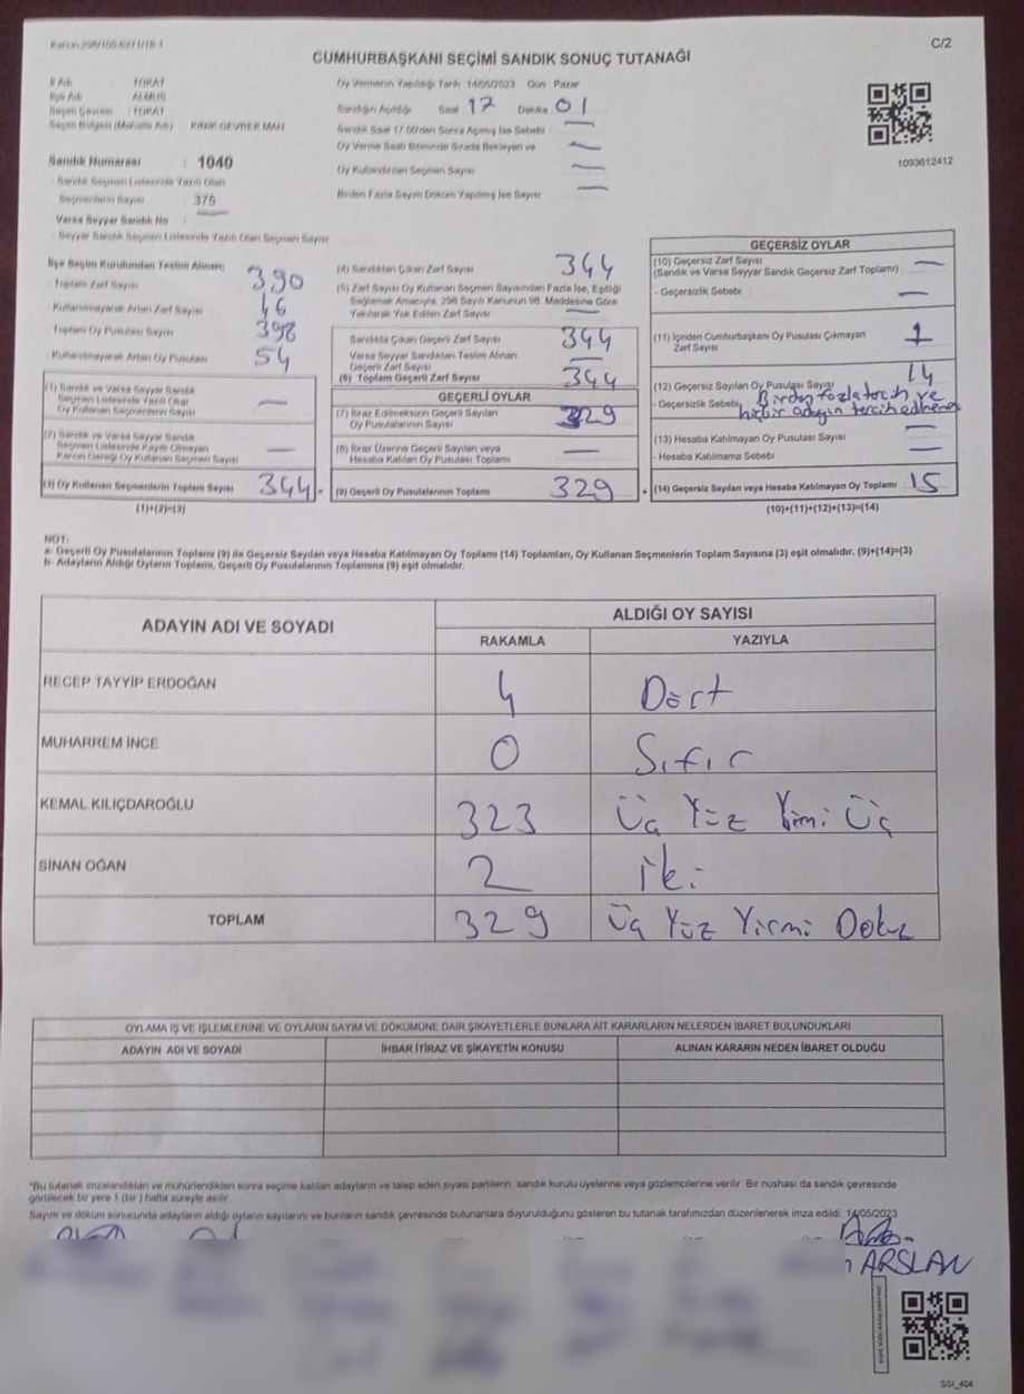 C/2
CUMHURBAŞKANI SEÇİMİ SANDIK SONUÇ TUTANAĞI
İl Adı TOKAT
İlçe Adı ALMUS
Seçim Çevresi : TOKAT
Seçim Bölgesi (Mahalle Adı)
Sandık Numarası : 1040
Sandık Seçmen Listesinde Yazılı Olan
Seçmenlerin Sayısı 375
Varsa Seyyar Sandık No
Seyyar Sandık Seçmen Listesinde Yazılı Olan Seçmen Sayısı
Oy Vermenin Yapıldığı Tarih 14/05/2023 Gün Pazar
Sandığın Açıldığı Saat 17 Dakika 01
Sandık Saat 17.00'den Sonra Açılmış İse Sebebi —
Oy Verme Saati Bitiminde Sırada Bekleyen ve —
Oy Kullandırılan Seçmen Sayısı —
Birden Fazla Sayım Döküm Yapılmış İse Sayısı —
1093612412
İlçe Seçim Kurulundan Teslim Alınan;
Toplam Zarf Sayısı 390
Kullanılmayarak Artan Zarf Sayısı 46
Toplam Oy Pusulası Sayısı 398
Kullanılmayarak Artan Oy Pusulası 54
(1) Sandık ve Varsa Seyyar Sandık
Seçmen Listesinde Yazılı Olup
Oy Kullanan Seçmenlerin Sayısı —
(2) Sandık ve Varsa Seyyar Sandık
Seçmen Listesinde Kayıtlı Olmayan
Kanun Gereği Oy Kullanan Seçmen Sayısı —
(3) Oy Kullanan Seçmenlerin Toplam Sayısı 344
(1)+(2)=(3)
(4) Sandıktan Çıkan Zarf Sayısı 344
(5) Zarf Sayısı Oy Kullanan Seçmen Sayısından Fazla İse, Eşitliği
Sağlamak Amacıyla, 298 Sayılı Kanunun 98. Maddesine Göre
Yakılarak Yok Edilen Zarf Sayısı —
Sandıkta Çıkan Geçerli Zarf Sayısı 344
Varsa Seyyar Sandıktan Teslim Alınan
Geçerli Zarf Sayısı —
(6) Toplam Geçerli Zarf Sayısı 344
GEÇERLİ OYLAR
(7) İtiraz Edilmeksizin Geçerli Sayılan
Oy Pusulalarının Sayısı 329
(8) İtiraz Üzerine Geçerli Sayılan veya
Hesaba Katılan Oy Pusulası Toplamı —
(9) Geçerli Oy Pusulalarının Toplamı 329
GEÇERSİZ OYLAR
(10) Geçersiz Zarf Sayısı —
(Sandık ve Varsa Seyyar Sandık Geçersiz Zarf Toplamı)
- Geçersizlik Sebebi —
(11) İçinden Cumhurbaşkanı Oy Pusulası Çıkmayan 1
Zarf Sayısı
(12) Geçersiz Sayılan Oy Pusulası Sayısı 14
- Geçersizlik Sebebi Birden fazla tercih ve
hiçbir adayın tercih edilmemesi
(13) Hesaba Katılmayan Oy Pusulası Sayısı —
- Hesaba Katılmama Sebebi —
+ (14) Geçersiz Sayılan veya Hesaba Katılmayan Oy Toplamı 15
(10)+(11)+(12)+(13)=(14)
NOT:
a- Geçerli Oy Pusulalarının Toplamı (9) ile Geçersiz Sayılan veya Hesaba Katılmayan Oy Toplamı (14) Toplamları, Oy Kullanan Seçmenlerin Toplam Sayısına (3) eşit olmalıdır. (9)+(14)=(3)
b- Adayların Aldığı Oyların Toplamı, Geçerli Oy Pusulalarının Toplamına (9) eşit olmalıdır.
ADAYIN ADI VE SOYADI
ALDIĞI OY SAYISI
RAKAMLA YAZIYLA
RECEP TAYYİP ERDOĞAN 4 Dört
MUHARREM İNCE 0 Sıfır
KEMAL KILIÇDAROĞLU 323 Üç Yüz Yimi Üç
SİNAN OĞAN 2 iki
TOPLAM 329 Üç Yüz Yirmi Dokuz
OYLAMA İŞ VE İŞLEMLERİNE VE OYLARIN SAYIM VE DÖKÜMÜNE DAİR ŞİKAYETLERLE BUNLARA AİT KARARLARIN NELERDEN İBARET BULUNDUKLARI
ADAYIN ADI VE SOYADI İHBAR İTİRAZ VE ŞİKAYETİN KONUSU ALINAN KARARIN NEDEN İBARET OLDUĞU
*Bu tutanak imzalandıktan ve mühürlendikten sonra seçime katılan adayların ve talep eden siyasi partilerin sandık kurulu üyelerine veya gözlemcilerine verilir. Bir nüshası da sandık çevresinde
görülecek bir yere 1 (bir) hafta süreyle asılır.
Sayım ve döküm sonucunda adayların aldığı oyların sayılarını ve bunların sandık çevresinde bulunanlara duyurulduğunu gösteren bu tutanak tarafımızdan düzenlenerek imza edildi. 14/05/2023
ARSLAN
SGI_404